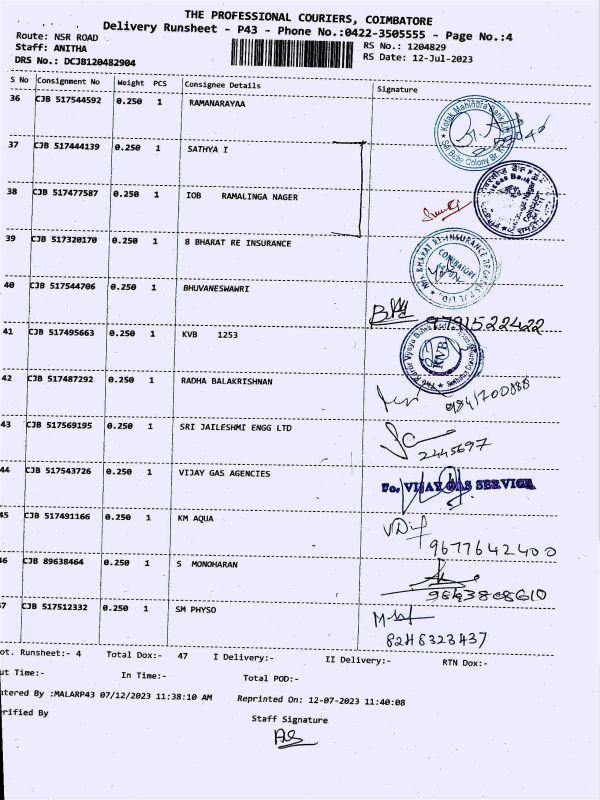 THE PROFESSIONAL COURIERS, COIMBATORE
Delivery Runsheet - P43 - Phone No.:0422-3505555 - Page No.:4
Route: NSR ROAD RS No.: 1204829
Staff: ANITHA RS Date: 12-Jul-2023
DRS No.: DCJB120482904
S No Consignment No Weight PCS Consignee Details Signature
36 CJB 517544592 0.250 1 RAMANARAYAA
37 CJB 517444139 0.250 1 SATHYA I
38 CJB 517477587 0.250 1 IOB RAMALINGA NAGER
39 CJB 517320170 0.250 1 8 BHARAT RE INSURANCE
40 CJB 517544706 0.250 1 BHUVANESWAWRI
9791522422
41 CJB 517495663 0.250 1 KVB 1253
KVB
42 CJB 517487292 0.250 1 RADHA BALAKRISHNAN
43 CJB 517569195 0.250 1 SRI JAILESHMI ENGG LTD
2445697
44 CJB 517543726 0.250 1 VIJAY GAS AGENCIES
For VIJAY GAS SERVICE
45 CJB 517491166 0.250 1 KM AQUA
9677642400
46 CJB 89638464 0.250 1 S MONOHARAN
47 CJB 517512332 0.250 1 SM PHYSO
8248323437
ot. Runsheet:- 4 Total Dox:- 47 I Delivery:- II Delivery:- RTN Dox:-
ut Time:- In Time:- Total POD:-
tered By :MALARP43 07/12/2023 11:38:10 AM Reprinted On: 12-07-2023 11:40:08
erified By
Staff Signature